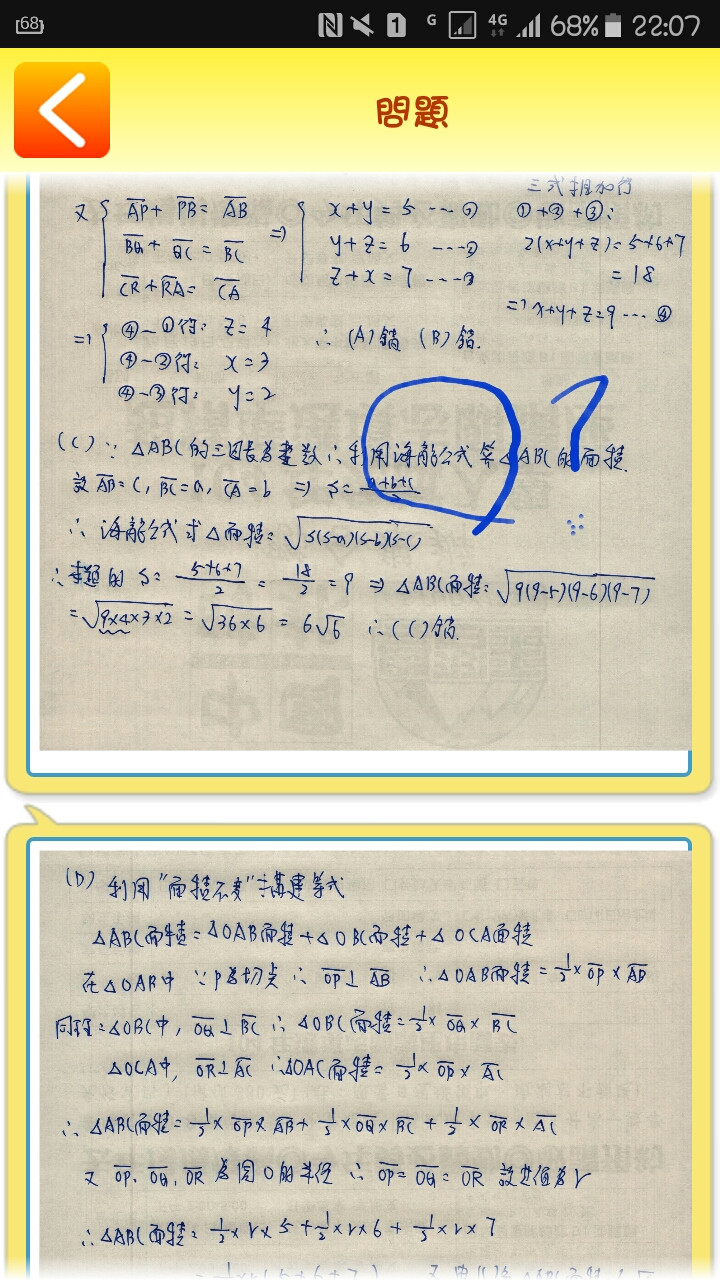 68
G 4G 68% 22:07
問題
三式相加得
又 AP + PB = AB ⇒ x + y = 5 ---- ① ① + ② + ③:
BQ + QC = BC y + z = 6 ---- ② 2(x+y+z) = 5+6+7
CR + RA = CA z + x = 7 ---- ③ = 18
⇒ x+y+z = 9 ---- ④
⇒ ④-①得: z = 4 ∴ (A)錯 (B)錯.
④-②得: x = 3
④-③得: y = 2
(C) ∵ △ABC的三邊長為整數 ∴ 利用海龍公式算△ABC的面積.
設 AB = c, BC = a, CA = b ⇒ s = (a+b+c)/2
∴ 海龍公式求△面積 = √s(s-a)(s-b)(s-c)
∴ 本題的 s = (5+6+7)/2 = 18/2 = 9 ⇒ △ABC面積 = √9(9-5)(9-6)(9-7)
= √9×4×3×2 = √36×6 = 6√6 ∴ (C)錯.
(D) 利用"面積不變"搭建等式
△ABC面積 = △OAB面積 + △OBC面積 + △OCA面積
在△OAB中 ∵ P為切點 ∴ OP ⊥ AB ∴ △OAB面積 = 1/2 × OP × AB
同理 = △OBC中, OQ ⊥ BC ∴ △OBC面積 = 1/2 × OQ × BC
△OCA中, OR ⊥ AC ∴ △OAC面積 = 1/2 × OP × AC
∴ △ABC面積 = 1/2 × OP × AB + 1/2 × OQ × BC + 1/2 × OR × AC
又 OP、OQ、OR 為圓O的半徑 ∴ OP = OQ = OR 設其值為r
∴ △ABC面積 = 1/2 × r × 5 + 1/2 × r × 6 + 1/2 × r × 7